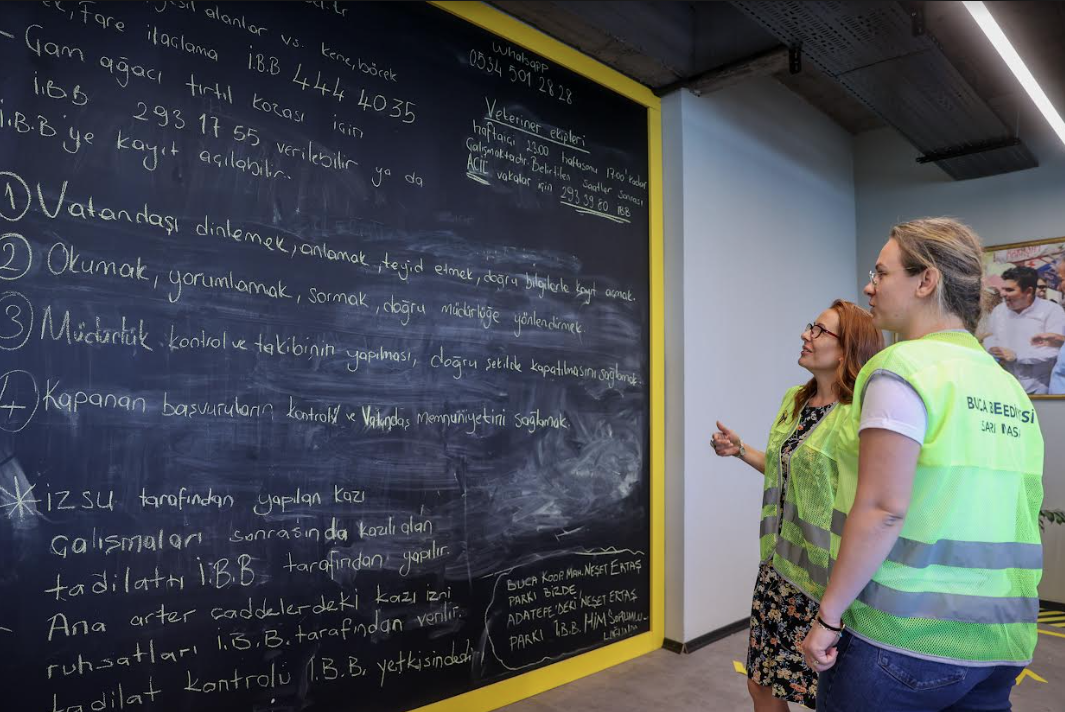 Fare ilaçlama İ.B.B 444 4035
alanlar vs. kene, böcek
- Çam ağacı tırtıl kozası için
İ.B.B 293 17 55 verilebilir ya da
İ.B.B'ye kayıt açılabilir.
① Vatandaşı dinlemek, anlamak, teyid etmek, doğru bilgilerle kayıt açmak.
② Okumak, yorumlamak, sormak, doğru müdürlüğe yönlendirmek.
③ Müdürlük kontrol ve takibinin yapılması, doğru şekilde kapatılmasını sağlamak.
④ Kapanan başvuruların kontrolü ve Vatandaş Memnuniyetini sağlamak.
* İZSU tarafından yapılan kazı
çalışmaları sonrasında kazılı alan
tadilatı İ.B.B tarafından yapılır.
Ana arter caddelerdeki kazı izni
ruhsatları İ.B.B. tarafından verilir.
tadilat kontrolü İ.B.B. yetkisindedir
Whatsapp
0534 501 28 28
Veteriner ekipleri
haftaiçi 23:00 haftasonu 17:00'kadar
çalışmaktadır. Belirtilen saatler sonrası
ACİL vakalar için 293 39 80 İBB
BUCA KOOP. MAH. NEŞET ERTAŞ
PARKI BİZDE
ADATEPE'DEKİ NEŞET ERTAŞ
PARKI İ.B.B. HİM SORUMLU-
BUCA BELEDİYESİ
SARI MASA